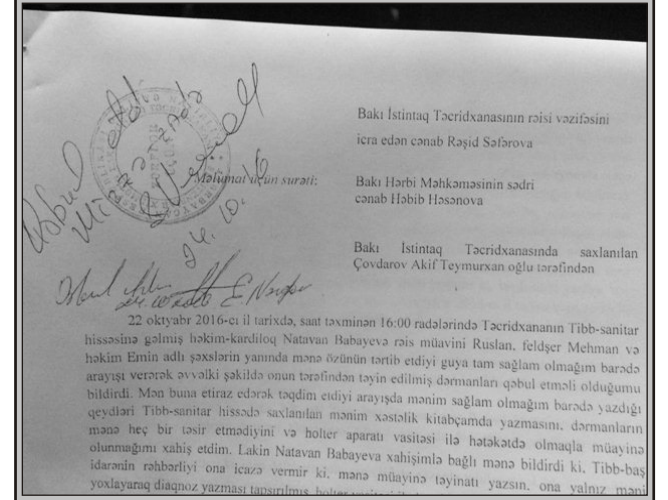 Bakı İstintaq Təcridxanasının rəisi vəzifəsini
icra edən cənab Rəşid Səfərova
Məlumat üçün surəti:
Bakı Hərbi Məhkəməsinin sədri
cənab Həbib Həsənova
Bakı İstintaq Təcridxanasında saxlanılan
Çovdarov Akif Teymurxan oğlu tərəfindən
24.10.16
22 oktyabr 2016-cı il tarixdə, saat təxminən 16:00 radələrində Təcridxananın Tibb-sanitar
hissəsinə gəlmiş həkim-kardiloq Natavan Babayevə rəis müavini Ruslan, feldşer Mehman və
həkim Emin adlı şəxslərin yanında mənə özünün tərtib etdiyi guya tam sağlam olmağım barədə
arayışı verərək əvvəlki şəkildə onun tərəfindən təyin edilmiş dərmanları qəbul etməli olduğumu
bildirdi. Mən buna etiraz edərək təqdim etdiyi arayışda mənim sağlam olmağım barədə yazdığı
qeydləri Tibb-sanitar hissədə saxlanılan mənim xəstəlik kitabçamda yazmasını, dərmanların
mənə heç bir təsir etmədiyini və holter aparatı vasitəsi ilə hətəkətdə olmaqla müayinə
olunmağımı xahiş etdim. Lakin Natavan Babayeva xahişimlə bağlı mənə bildirdi ki, Tibb-baş
idarənin rəhbərliyi ona icazə vermir ki, mənə müayinə təyinatı yazsın, ona yalnız məni
yoxlayaraq diaqnoz yazması tapşırılmış